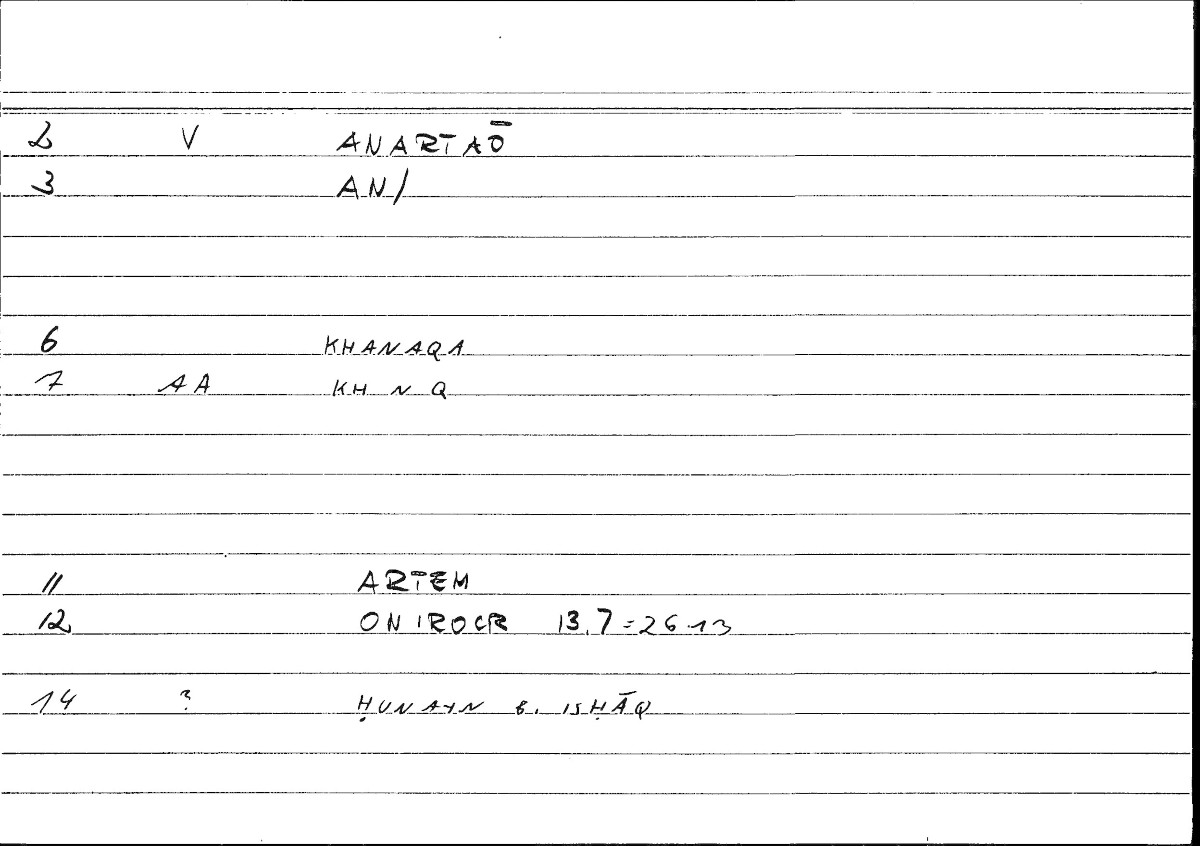 2 V ANARTAŌ
3 AN/
6 KHANAQA
7 AA KH N Q
11 ARTEM
12 ONIROCR 13.7=26.13
14 ? ḤUNAYN B. ISḤĀQ